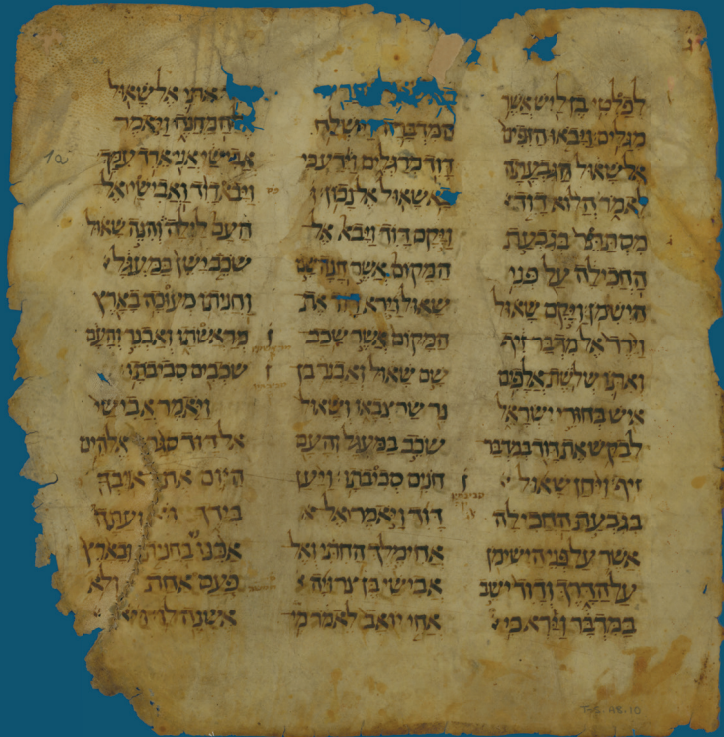 לפלטי בן ליש אשר
מגלים ויבאו הזפים
אל שאול הגבעתה
לאמר הלוא דוד
מסתתר בגבעת
החכילה על פני
הישמן ויקם שאול
וירד אל מדבר זיף
ואתו שלשת אלפים
איש בחורי ישראל
לבקש את דוד במדבר
זיף ויחן שאול
בגבעת החכילה
אשר על פני הישימן
על הדרך ודוד ישב
במדבר וירא כי
המדברה וישלח
דוד מרגלים וידע כי
בא שאול אל נכון
ויקם דוד ויבא אל
המקום אשר חנה שם
שאול וירא דוד את
המקום אשר שכב
שם שאול ואבנר בן
נר שר צבאו ושאול
שכב במעגל והעם
חנים סביבתו ויען
דוד ויאמר אל
אחימלך החתי ואל
אבישי בן צרויה
אחי יואב לאמר מי
אתי אל שאול
המחנה ויאמר
אבישי אני ארד עמך
ויבא דוד ואבישי אל
העם לילה והנה שאול
שכב ישן במעגל
וחניתו מעוכה בארץ
מראשתו ואבנר והעם
שכבים סביבתו
ויאמר אבישי
אל דוד סגר אלהים
היום את אויבך
בידך ועתה
אכנו נא בחנית ובארץ
פעם אחת ולא
אשנה לו
1a
T-S. A8.10